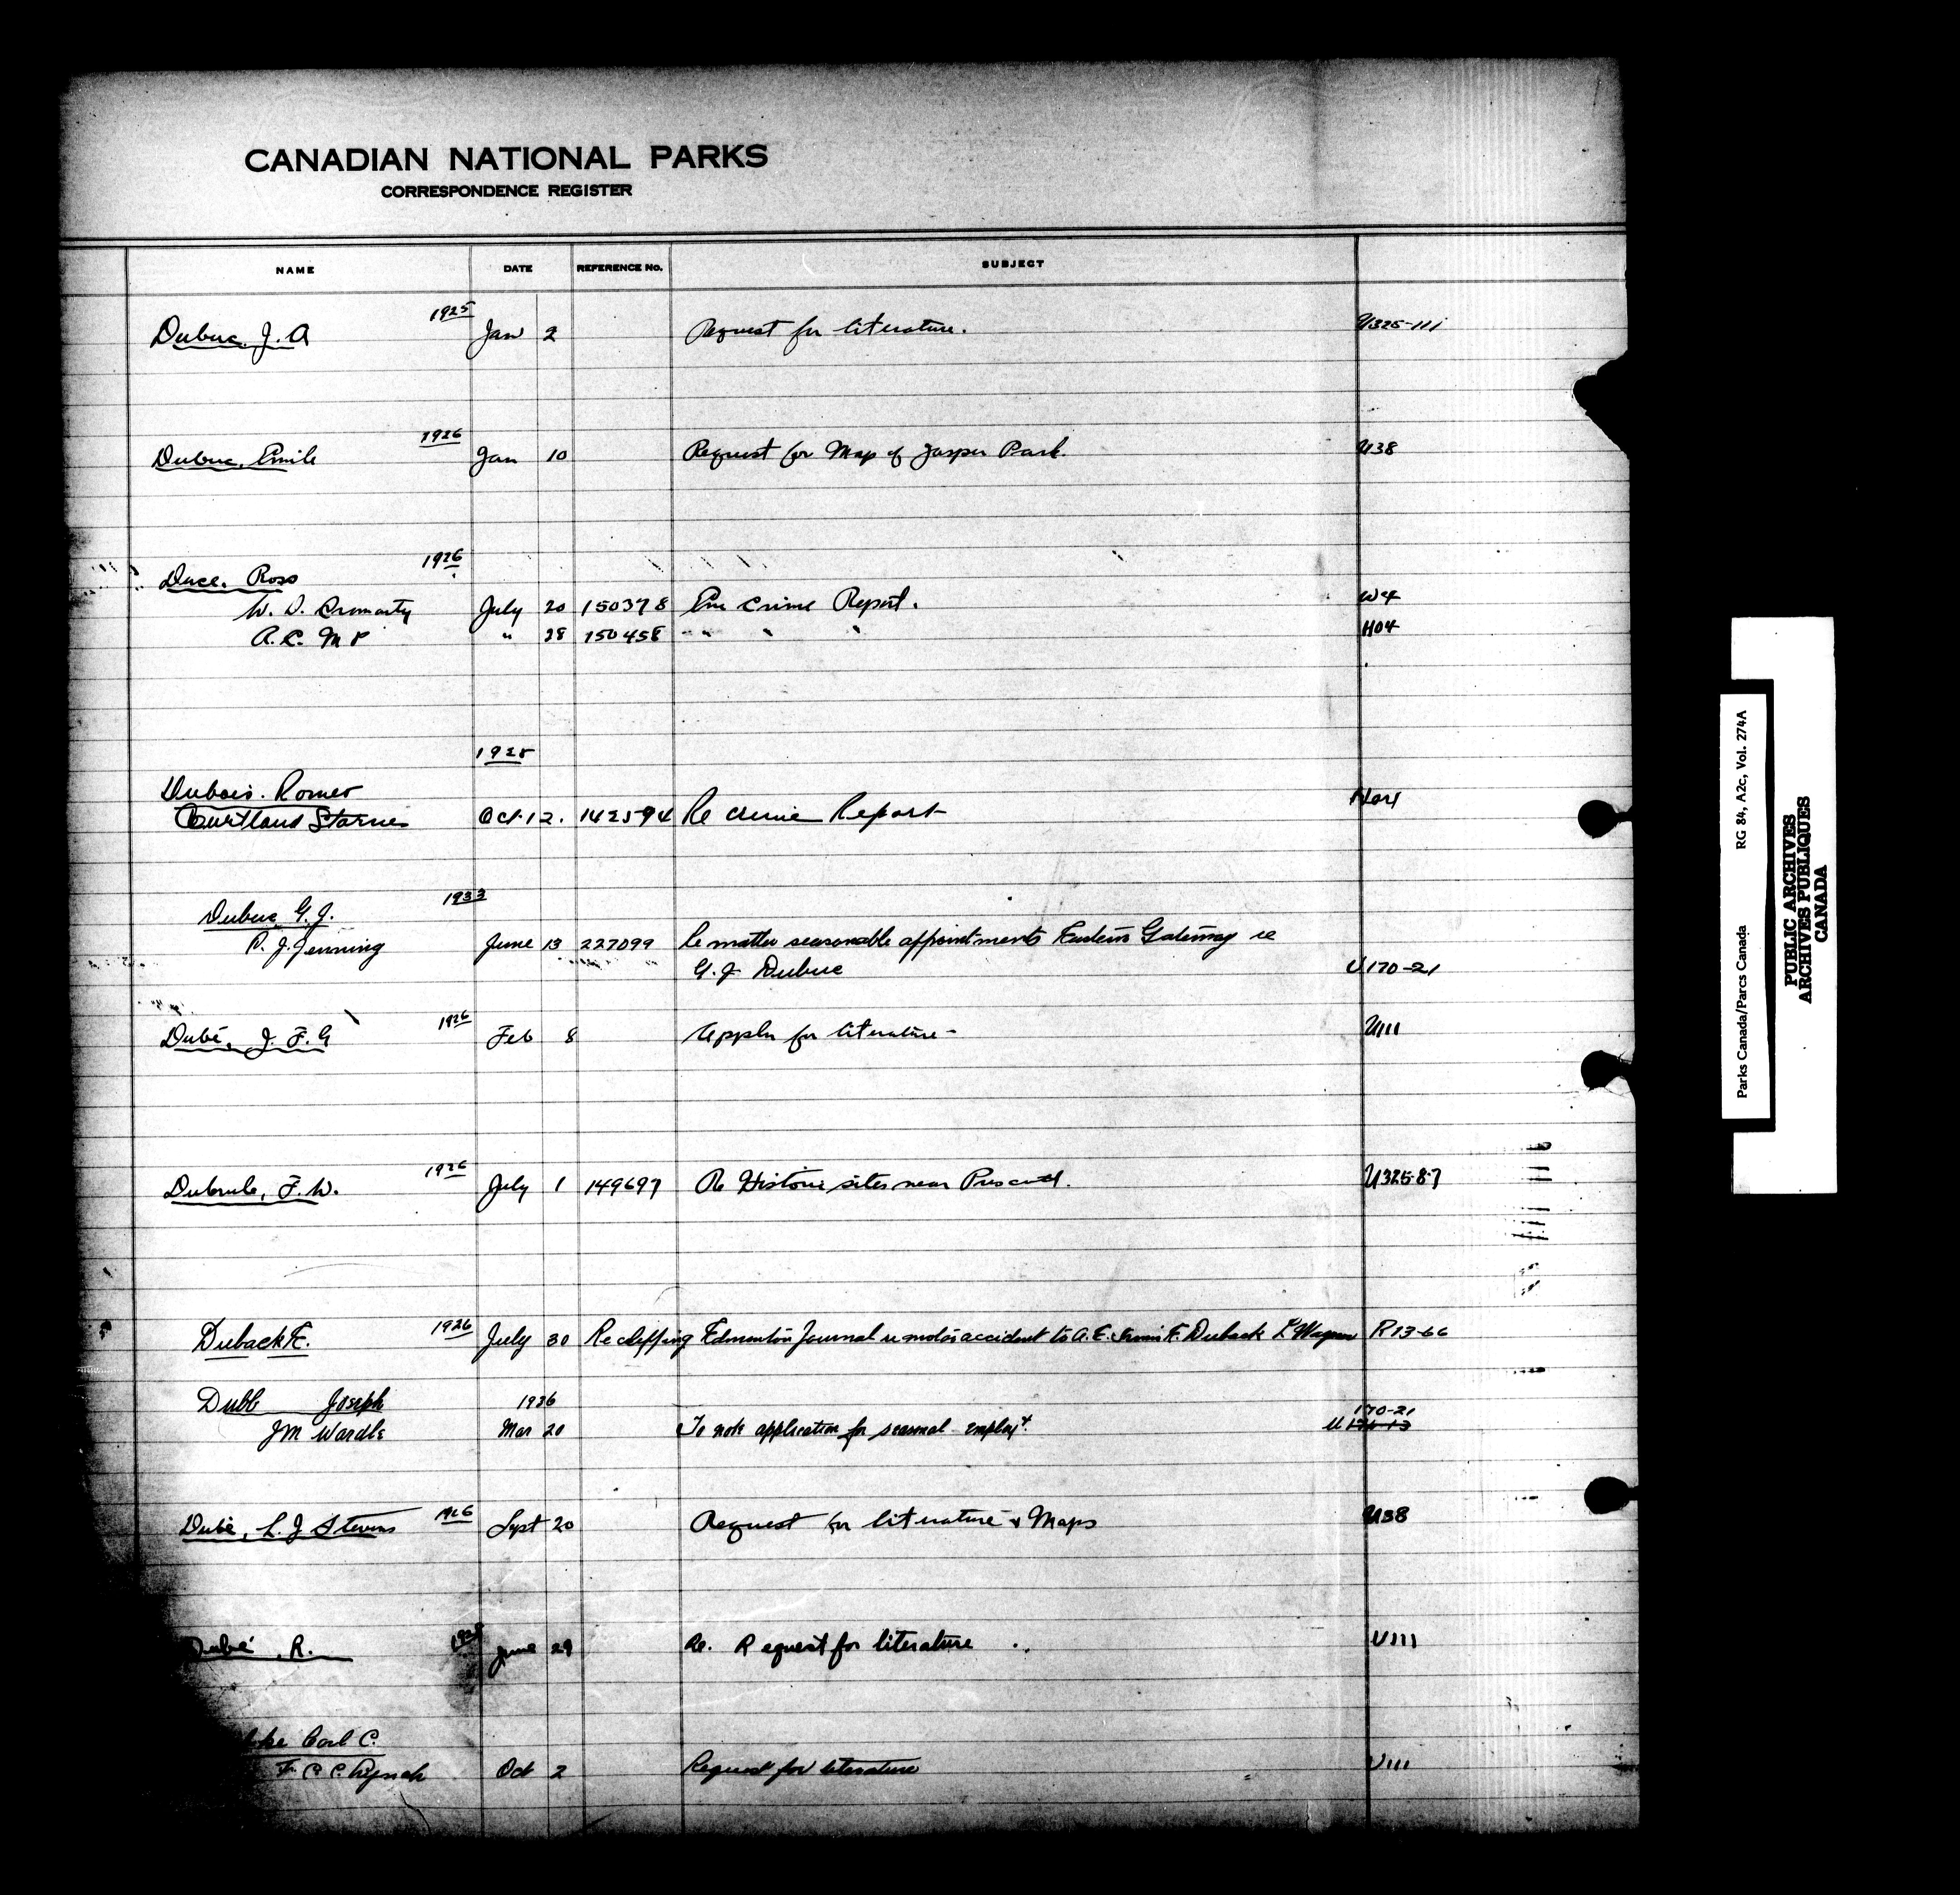 CANADIAN NATIONAL PARKS
CORRESPONDENCE REGISTER
NAME DATE REFERENCE No. SUBJECT
1925
Dubuc, J. A Jan 2 Request for literature. U325-111
1926
Dubuc, Emile Jan 10 Request for Map of Jasper Park. U38
1926
Duce, Ross
W. D. Cromarty July 20 150378 Crime Report. W4
R. C. M P " 28 150458 " " " H04
1925
Dubois. Romeo
Courtland Starnes Oct. 12. 142594 Re crime Report
1933
Dubuc G. J.
P. J. Jenning June 13 227099 Re matter seasonable appointments Eastern Gateway re
G. J. Dubuc U170-21
1926
Dubé, J. F. G Feb 8 Appln for literature - U111
1926
Dubrule, F. W. July 1 149697 Re Historic sites near Prescott. U325-8-7
1926
Duback F. July 30 Re clipping Edmonton Journal re motor accident to A. E. F. Duback L Wagner R13-66
Dubb Joseph 1936
JM Wardle Mar 20 To note application for seasonal employt. U 170-21
1926
Dubé, L. J Stevens Sept 20 Request for literature & Maps U38
Dubé, R. June 29 Re. Request for literature U111
Carl C.
F. C. C. Lynch Oct 2 Request for literature U111
Parks Canada/Parcs Canada RG 84, A2c, Vol. 274A
PUBLIC ARCHIVES
ARCHIVES PUBLIQUES
CANADA